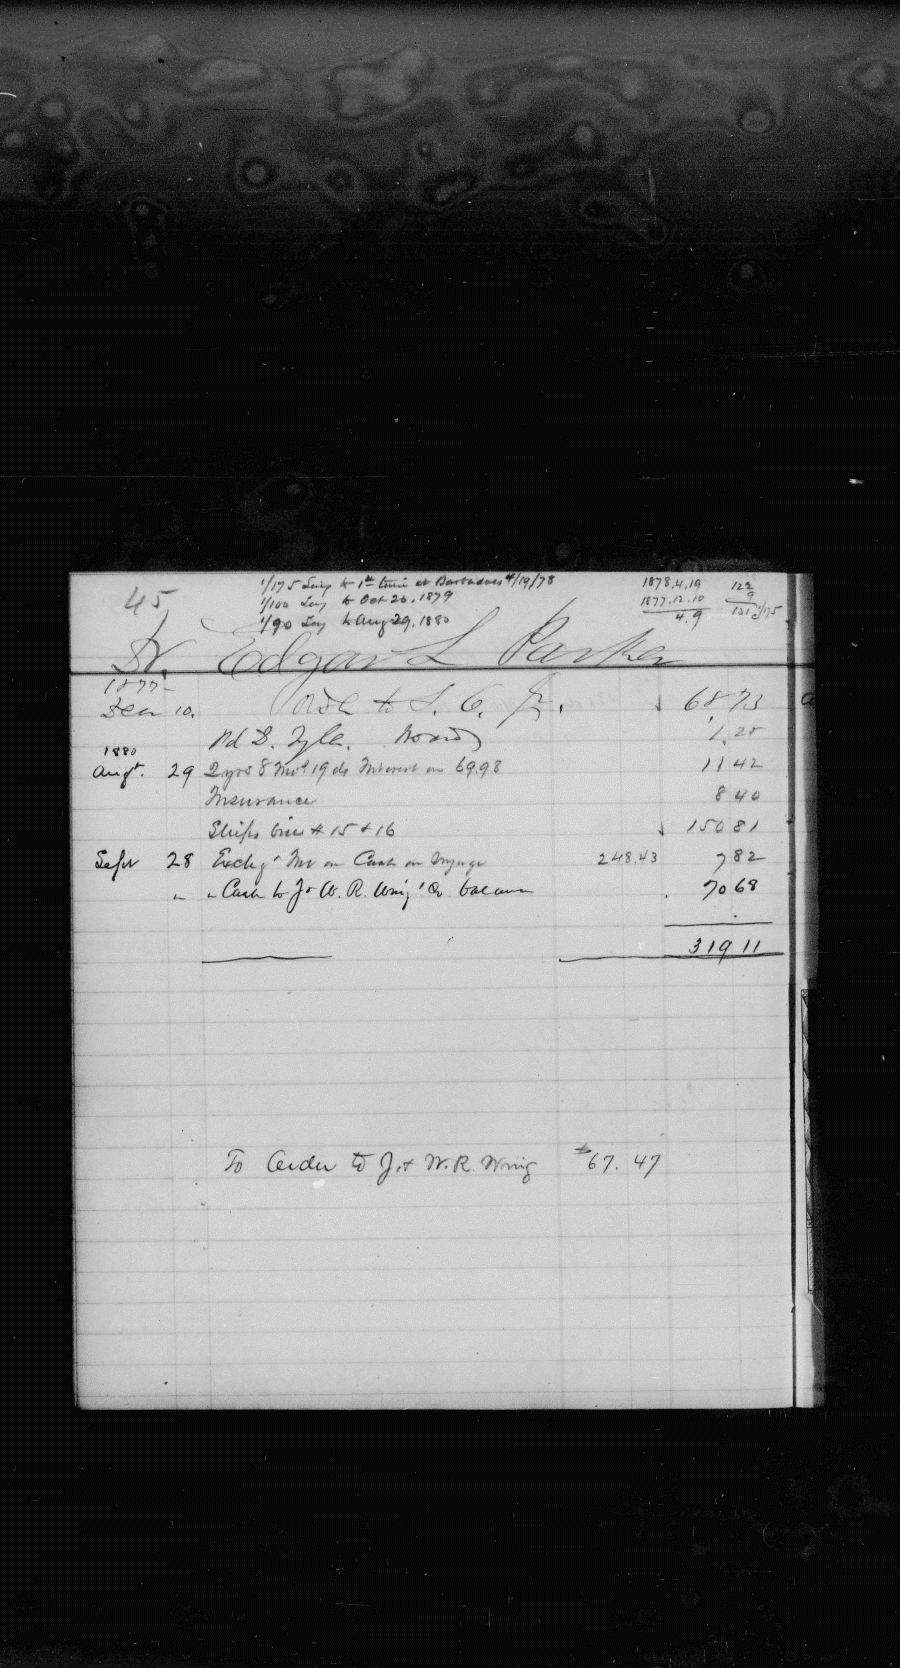 45
1/175 Lay to 1st time at Barbadoes 4/19/78
1/100 Lay to Oct 26, 1879
1/90 Lay to Aug 29, 1880
1878.4.19
1877.12.10
4.9
122
9
131 1/175
Dr. Edgar L Parker
1877
Dec 10. to S. C. Jr. 68 73
Pd S. Tyler. Board 1.25
1880
Augt. 29 2 yrs 8 Mos 19 ds Interest on 69.98 11 42
Insurance 8 40
Ships bill # 15 + 16 150 81
Sept 28 Exchg + Int on Cash on Voyage 248.43 7 82
" " Cash to J + W. R. Wing + Co balance 70 68
319 11
To Order to J. + W. R. Wing $67.47